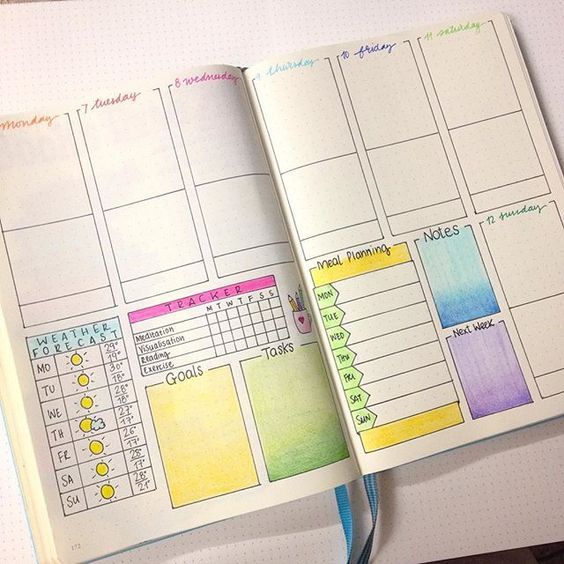 monday
7 tuesday
8 wednesday
9 thursday
10 friday
11 saturday
12 sunday
WEATHER
FORECAST
MO 29° 19°
TU 30° 18°
WE 28° 18°
TH 27° 17°
FR 26° 17°
SA 28° 17°
SU 28° 21°
TRACKER
M T W T F S S
Meditation
Visualisation
Reading
Exercise
Goals
Tasks
Meal Planning
MON
TUE
WED
THU
FRI
SAT
SUN
Notes
Next Week
172